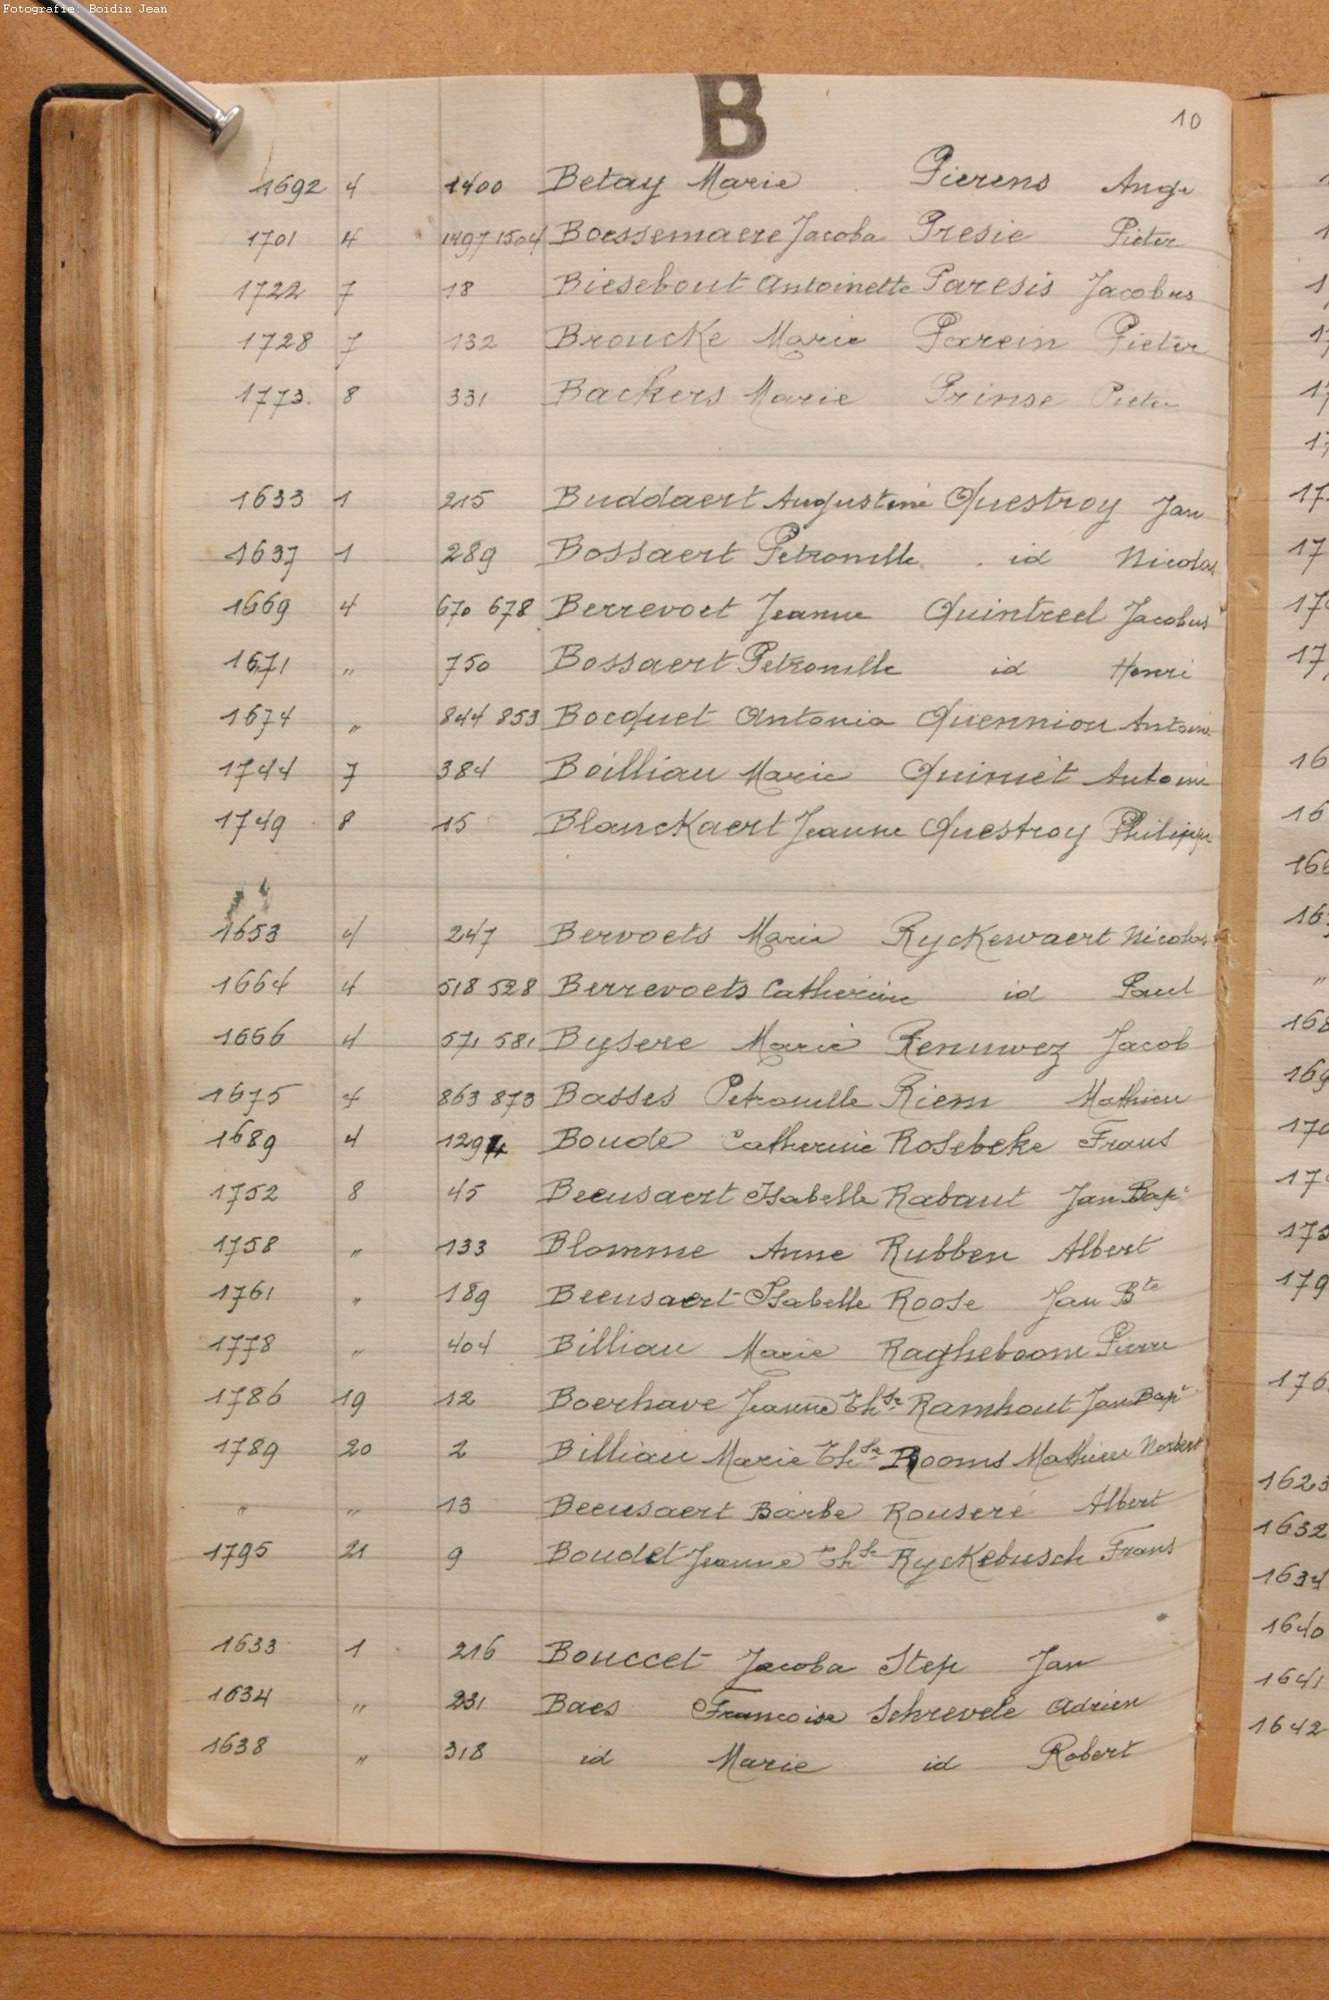 Fotografie: Boidin Jean
B
10
1692 4 1400 Betay Marie Pierens Ange
1701 4 1497 1504 Boessemaere Jacoba Presie Pieter
1722 7 18 Biesebout Antoinette Paresis Jacobus
1728 7 132 Broucke Marie Parein Pieter
1773. 8 331 Backers Marie Prinse Pieter
1633 1 215 Buddaert Augustine Questroy Jan
1637 1 289 Bossaert Petronille id Nicolas
1669 4 670 678 Berrevoet Jeanne Quintreel Jacobus
1671 " 750 Bossaert Petronille id Henri
1674 " 844 853 Bocquet Antonia Quenniou Antoine
1744 7 384 Boilliau Marie Quinuet Antoine
1749 8 15 Blanckaert Jeanne Questroy Philippe
1653 4 247 Bervoets Marie Ryckewaert Nicolas
1664 4 518 528 Berrevoets Catherine id Paul
1666 4 571 581 Bysere Marie Renuwez Jacob
1675 4 863 873 Basses Petronille Riem Mathieu
1689 4 1294 Boude Catherine Rosebeke Frans
1752 8 45 Beeusaert Isabelle Rabaut Jan Bapt
1758 " 133 Blomme Anne Rubben Albert
1761 " 189 Beeusaert Isabelle Roose Jan Bte
1778 " 404 Billiau Marie Ragheboom Pierre
1786 19 12 Boerhave Jeanne Thse Ramhout Jan Bapt
1789 20 2 Billiau Marie Thse Rooms Mathieu Norbert
" " 13 Beeusaert Barbe Rouseré Albert
1795 21 9 Boudet Jeanne Thse Ryckebusch Frans
1633 1 216 Bouccet Jacoba Step Jan
1634 " 231 Baes Francoise Schrevele Adrien
1638 " 318 id Marie id Robert